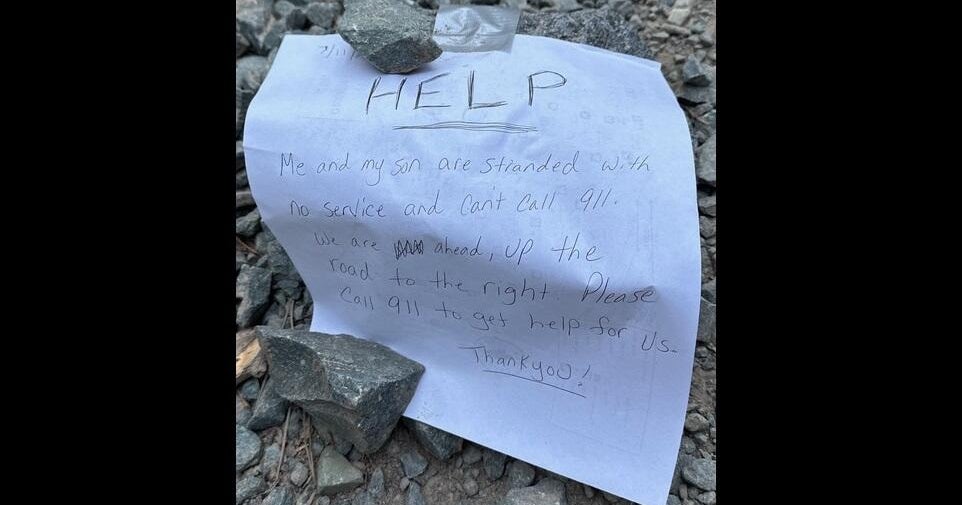 HELP
Me and my son are stranded with
no service and can't call 911.
We are ahead, up the
road to the right. Please
Call 911 to get help for us.
Thankyou!